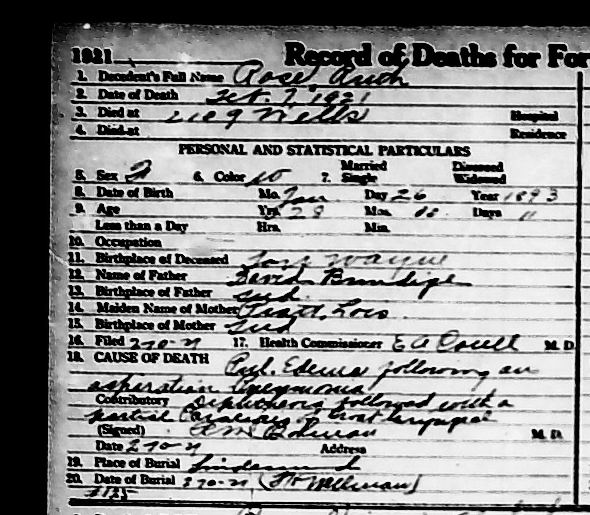 1921 Record of Deaths for For
1. Decedent's Full Name Rose Auth
2. Date of Death Feb. 7, 1921
3. Died at Wells Hospital
4. Died at Residence
PERSONAL AND STATISTICAL PARTICULARS
5. Sex F 6. Color W 7. Married Single Divorced Widowed
8. Date of Birth Mo. Jan Day 26 Year 1893
9. Age Yrs. 28 Mos. 00 Days 11
Less than a Day Hrs. Min.
10. Occupation
11. Birthplace of Deceased Fort Wayne
12. Name of Father David
13. Birthplace of Father Ind.
14. Maiden Name of Mother Pratt, Lois
15. Birthplace of Mother Ind
16. Filed 17. Health Commissioner E A M. D.
18. CAUSE OF DEATH Pul. Edema following an
aspiration Pneumonia
Contributory Diphtheria followed with a
partial Paralysis of throat laryngeal
(Signed) M. D.
Date Address
19. Place of Burial Lindenwood
20. Date of Burial